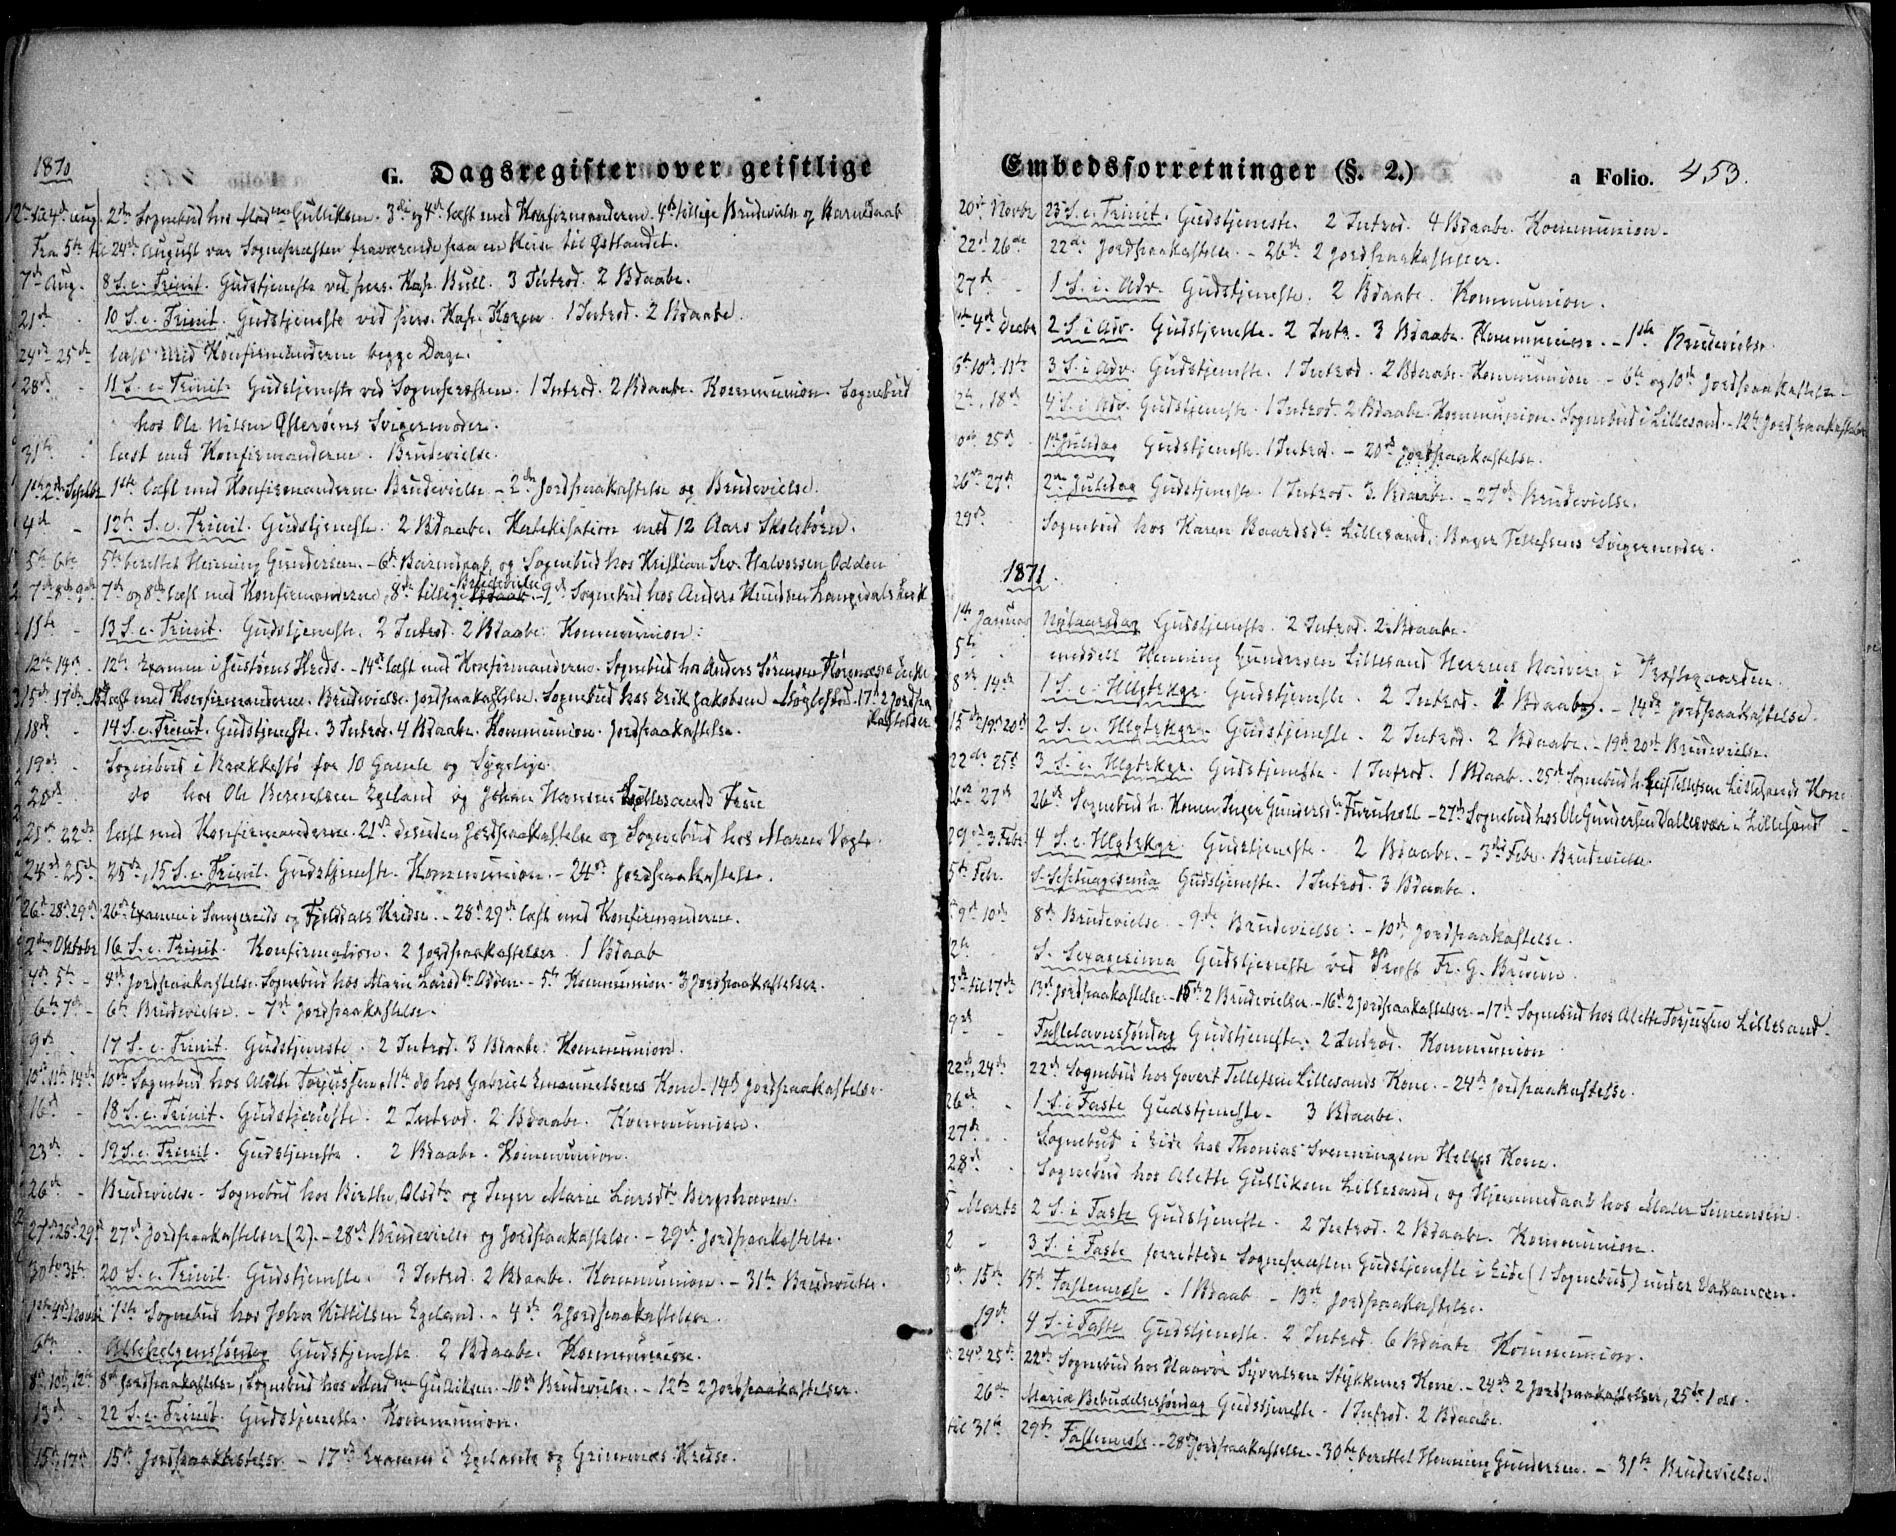 1870
G. Dagsregister over geistlige
2den til 4de Aug. 2den Sognebud hos Madme Gulliksen. 3die og 4de læst med Konfirmanderne. 4de tillige Brudevielse og Barnedaab
Fra 5te til 24de August var Sognepræsten fraværende paa en Reise til Østlandet.
7de Aug. 8 S. e. Trinit. Gudstjeneste ved pers. Kap. Bull. 3 Introd. 2 Bdaabe.
21de 10 S. e. Trinit. Gudstjeneste ved pers. Kap. Koren. 1 Introd. 2 Bdaabe.
24de 25de læst med Konfirmanderne begge Dage.
28de 11 S. e. Trinit. Gudstjeneste ved Sognepræsten. 1 Introd. 2 Bdaabe. Kommunion. Sognebud
hos Ole Nilsen Østerøens Svigermoder.
31te læst med Konfirmanderne. Brudevielse.
1ste 2den Septbr 1ste læst med Konfirmanderne. Brudevielse - 2den Jordpaakastelse og Brudevielse.
4de - 12te S. e. Trinit. Gudstjeneste. 2 Bdaabe. Katekisation med 12 Aars Skolebørn.
5te 6te 5te berettet Henning Gundersen. - 6te Barnedaab og Sognebud hos Kristian Sev. Halvorsen Odden
7de 8de 9de 7de og 8de læst med Konfirmanderne, 8de tillige Bdaab Brudevielse - 9de Sognebud hos Anders Knudsen Langedals Enke
11te - 13 S. e. Trinit. Gudstjeneste. 2 Introd. 2 Bdaabe. Kommunion.
12te 14de - 12te Examen i Justøens Kreds. - 14de læst med Konfirmanderne. Sognebud hos Anders Sørensen Enke
15de 17de 15de læst med Konfirmanderne. Brudevielse. Jordpaakastelse. Sognebud hos Erik Jakobsen Møglestu. 17de 2 Jordpaa
kastelser
18de 14 S. e. Trinit. Gudstjeneste. 3 Introd. 4 Bdaabe. Kommunion. Jordpaakastelse.
19de - Sognebud i Brækkestø for 10 Gamle og Sygelige.
20de do hos Ole Berntsen Egeland og Johan Hansen Lillesands Frue
21de 22de læst med Konfirmanderne. 21de desuden Jordpaakastelse og Sognebud hos Maren Vogt.
24de 25de 25de, 15 S. e. Trinit. Gudstjeneste. Kommunion. - 24de Jordpaakastelse.
26de 28de 29de 26de Examen i Sangereids og Fjeldals Kredse. - 28de 29de læst med Konfirmanderne.
2den Oktober 16 S. e. Trinit. Konfirmation. 2 Jordpaakastelser. 1 Bdaab
4de 5te - 4de Jordpaakastelse. Sognebud hos Marie Larsdtr Odden - 5te Kommunion. 3 Jordpaakastelser.
6te 7de - 6te Brudevielse. - 7de Jordpaakastelse.
9de 17 S. e. Trinit. Gudstjeneste. 2 Introd. 3 Bdaabe. Kommunion.
10de 11te 14de 10de Sognebud hos Alette Torjussen. 11te do hos Gabriel Emanuelsens Kone. 14de Jordpaakastelse.
16de - 18 S. e. Trinit. Gudstjeneste. 2 Introd. 2 Bdaabe. Kommunion.
23de - 19 S. e. Trinit. Gudstjeneste. 2 Bdaabe. Kommunion.
26de - Brudevielse. Sognebud hos Birthe Olsdtr og Inger Marie Larsdtr Bergshaven.
27de 28de 29de 27de Jordpaakastelser (2). - 28de Brudevielse og Jordpaakastelse. - 29de Jordpaakastelse.
30te 31te 20 S. e. Trinit. Gudstjeneste. 3 Introd. 2 Bdaabe. Kommunion. - 31te Brudevielse.
1ste 4de Novbr 1ste Sognebud hos Johan Kittilsen Egeland. - 4de 2 Jordpaakastelser.
6te Allehelgenssøndag Gudstjeneste. 2 Bdaabe. Kommunion.
8de, 10de, 12te 8de Jordpaakastelse, Sognebud hos Madme Gulliksen. 10de Brudevielse. - 12te 2 Jordpaakastelser.
13de 22 S. e. Trinit. Gudstjeneste. Kommunion.
15de, 17de 15de Jordpaakastelse - 17de Examen i Egelands og Grimnes Kredse.
Embedsforretninger (§. 2.) a Folio. 453.
20de Novbr 23 S. e. Trinit. Gudstjeneste. 2 Introd. 4 Bdaabe. Kommunion.
22de 26de 22de Jordpaakastelse. - 26de 2 Jordpaakastelser.
27de - 1 S. i Adv. Gudstjeneste. 2 Bdaabe. Kommunion.
4de Decbr 2 S. i Adv. Gudstjeneste. 2 Intr. 3 Bdaabe. Kommunion. - 1ste Brudevielse.
6te 10de 11te 3 S. i Adv. Gudstjeneste. 1 Introd. 2 Bdaabe. Kommunion. - 6te og 10de Jordpaakastelse.
12te, 18de 4 S. i Adv. Gudstjeneste. 1 Introd. 2 Bdaabe. Kommunion. Sognebud i Lillesand. - 12te Jordpaakastelse
20de 25de 1ste Juledag Gudstjeneste. 1 Introd. - 20de Jordpaakastelse.
26de 27de 2den Juledag Gudstjeneste. 1 Introd. 3 Bdaabe. - 27de Brudevielse.
29de Sognebud hos Karen Baardsdtr Lillesand, Bager Tellefsens Svigermoder.
1871.
1ste Januar Nytaarsdag Gudstjeneste. 2 Introd. 2 Bdaabe.
5te meddelt Henning Gundersen Lillesand Herrens Nadvere i Prestegaarden.
8de 14de 1 S. e. Hlgtrkgr. Gudstjeneste. 2 Introd. 1 Bdaab. - 14de Jordpaakastelse.
15de 19de 20de 2 S. e. Hlgtrkgr. Gudstjeneste. 2 Introd. 2 Bdaabe. - 19de 20de Brudevielse.
22de 25de 3 S. e. Hlgtrkgr. Gudstjeneste. 1 Introd. 1 Bdaab. - 25de Sognebud h. Tellefsen Lillesands Kone
26de 27de 26de Sognebud h. Konen Inger Gundersdtr Furuholt - 27de Sognebud hos Ole Gundersen Vallesvær i Lillesand
29de 3 Febr 4 S. e. Hlgtrkgr. Gudstjeneste. 2 Bdaabe. - 3die Febr. Brudevielse.
5te Febr. S. Septuagesima Gudstjeneste. 1 Introd. 3 Bdaabe.
9de 10de 8de Brudevielse - 9de Brudevielse. - 10de Jordpaakastelse.
12te S. Sexagesima Gudstjeneste ved Provst Fr. G. Bruun
13de til 17de 13de Jordpaakastelse - 15de 2 Brudevielser - 16de 2 Jordpaakastelser - 17de Sognebud hos Alette Torjussen Lillesand.
19de Fastelavnssøndag Gudstjeneste. 2 Introd. Kommunion
22de, 24de 22de Sognebud hos Govert Tellefsen Lillesands Kone. - 24de Jordpaakastelse.
26de - 1 S. i Faste Gudstjeneste. 3 Bdaabe.
27de Sognebud i Eide hos Thomas Svenningsen Helles Kone.
28de Sognebud hos Alette Gulliksen Lillesand, og Hjemmedaab hos Maler Simonsen.
5 Marts 2 S. i Faste Gudstjeneste. 2 Introd. 2 Bdaabe. Kommunion.
12 - 3 S. i Faste forrettede Sognepræsten Gudstjeneste i Eide (1 Sognebud) under Vakancen.
13de 15de 15de Fastemesse. 1 Bdaab - 13de Jordpaakastelse.
19de 4 S. i Faste Gudstjeneste. 2 Introd. 6 Bdaabe Kommunion.
24de 25de 22de Sognebud hos Haavor Syvertsen Stykkenes Kone. - 24de 2 Jordpaakastelser, 25de 1 do.
26de Mariæ Bebudelsessøndag Gudstjeneste. 1 Introd. 2 Bdaabe.
til 31te 29de Fastemesse. - 28de Jordpaakastelse - 30te berettet Henning Gundersen. - 31te Brudevielse.